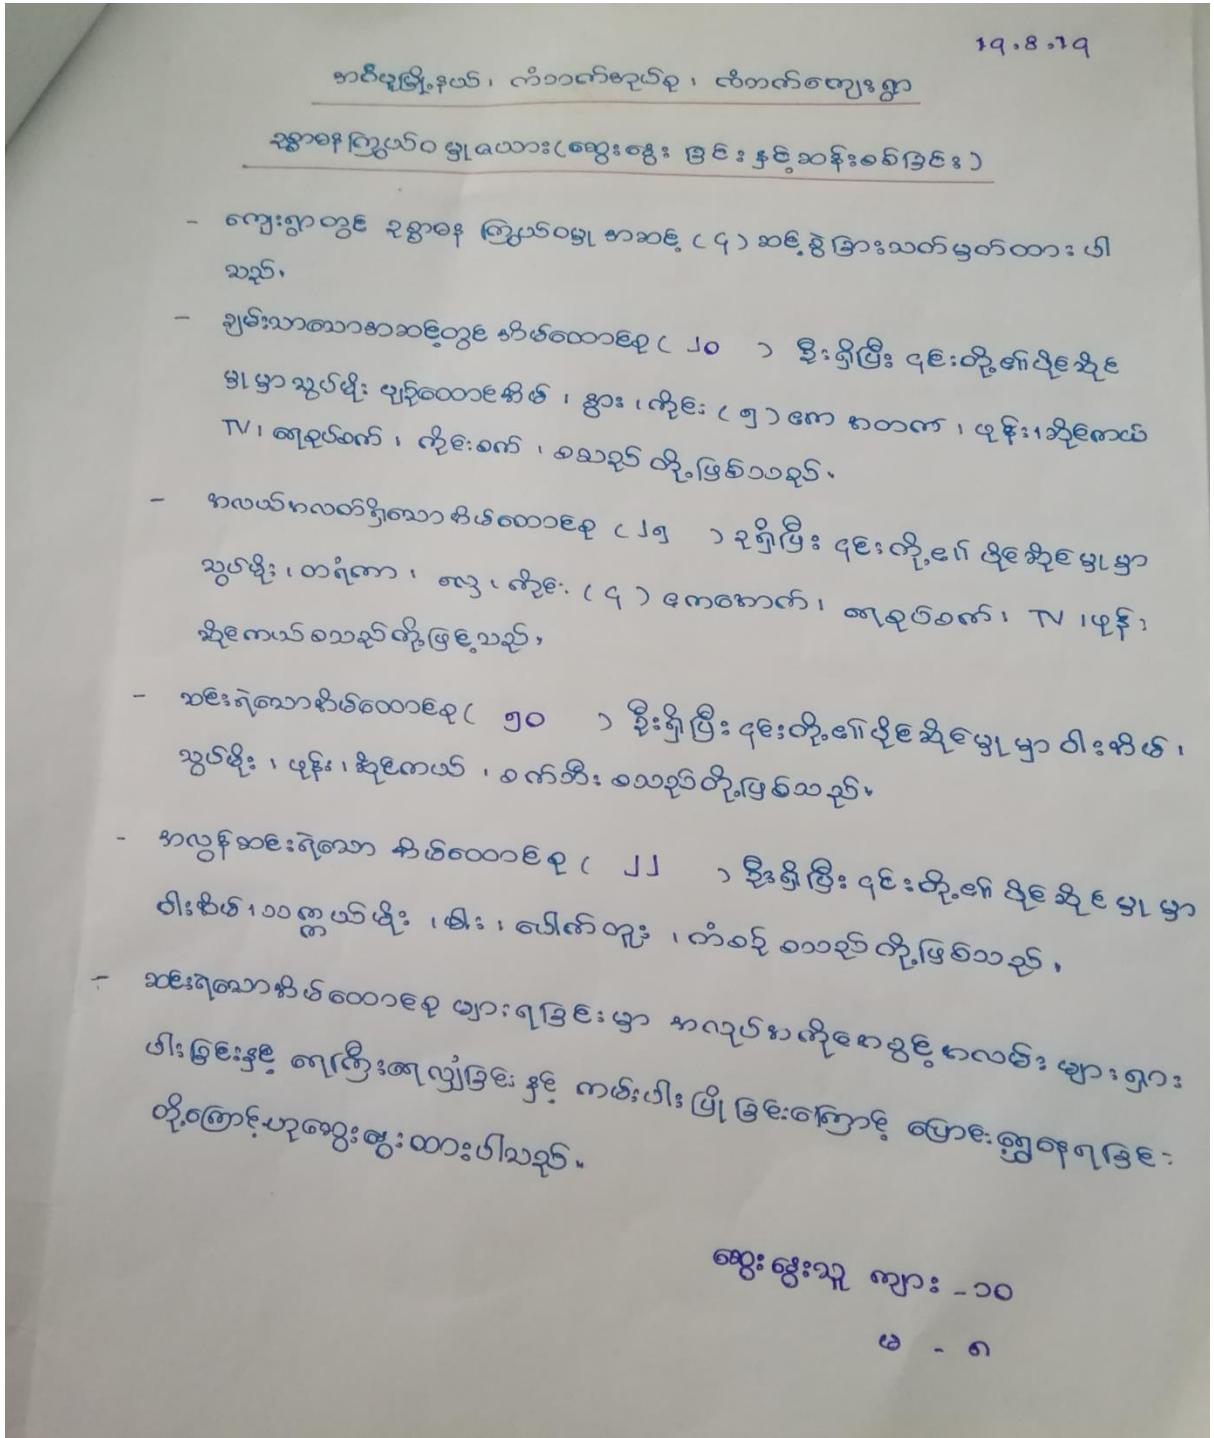 19.8.19
အင်္ဂပူမြို့နယ်၊ ကံဘက်အုပ်စု၊ လိတက်ကျေးရွာ
ဥစ္စာဓနကြွယ်ဝမှုဇယား(ဆွေးနွေးခြင်းနှင့်ဆန်းစစ်ခြင်း)
- ကျေးရွာတွင် ဥစ္စာဓန ကြွယ်ဝမှု အဆင့် (၄) ဆင့်ခွဲခြားသတ်မှတ်ထားပါ
သည်။
- ချမ်းသာသောအဆင့်တွင် အိမ်ထောင်စု ( ၂၀ ) ဦးရှိပြီး ၎င်းတို့၏ပိုင်ဆိုင်
မှုမှာ သွပ်မိုး ပျဉ်ထောင်အိမ်၊ နွား၊ ကိုင်း (၅) ဧက အထက်၊ ဖုန်း၊ ဆိုင်ကယ်
TV၊ ရေစုပ်စက်၊ ကိုင်းစက်၊ စသည်တို့ဖြစ်သည်။
- အလယ်အလတ်ရှိသောအိမ်ထောင်စု ( ၂၅ ) ခုရှိပြီး ၎င်းတို့၏ ပိုင်ဆိုင်မှုမှာ
သွပ်မိုး၊ ထရံကာ၊ လှေ၊ ကိုင်း (၄) ဧကအောက်၊ ရေစုပ်စက်၊ TV ၊ဖုန်း၊
ဆိုင်ကယ်စသည်တို့ဖြင့်သည်။
- ဆင်းရဲသောအိမ်ထောင်စု ( ၅၀ ) ဦးရှိပြီး ၎င်းတို့၏ပိုင်ဆိုင်မှုမှာ ဝါးအိမ်၊
သွပ်မိုး၊ ဖုန်း၊ ဆိုင်ကယ်၊ စက်ဘီး စသည်တို့ဖြစ်သည်။
- အလွန်ဆင်းရဲသော အိမ်ထောင်စု ( ၂၂ ) ဦးရှိပြီး ၎င်းတို့၏ ပိုင်ဆိုင်မှုမှာ
ဝါးအိမ်၊ သက္ကယ်မိုး၊ ဓါး၊ ပေါက်တူး၊ တံစဉ် စသည်တို့ဖြစ်သည်။
- ဆင်းရဲသောအိမ်ထောင်စု များရခြင်းမှာ အလုပ်အကိုင်အခွင့်အလမ်းများရှား
ပါးခြင်းနှင့် ရေကြီးရေလျှံခြင်း နှင့် ကမ်းပါးပြိုခြင်းကြောင့် ပြောင်းရွှေ့နေရခြင်း
တို့ကြောင့်ဟုဆွေးနွေးထားပါသည်။
ဆွေးနွေးသူ ကျား - ၁၀
မ - ၈